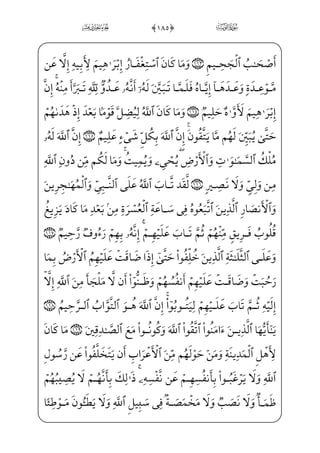 ﴿١٨٥﴾
أَصْحَـٰبُ ٱلْجَحِيمِ ١١٣ وَمَا كَانَ ٱسْتِغْفَارُ إِبْرَٰهِيمَ لِأَبِيهِ إِلَّا عَن
مَّوْعِدَةٍ وَعَدَهَآ إِيَّاهُ فَلَمَّا تَبَيَّنَ لَهُۥٓ أَنَّهُۥ عَدُوٌّ لِّلَّهِ تَبَرَّأَ مِنْهُ ۚ إِنَّ
إِبْرَٰهِيمَ لَأَوَّٰهٌ حَلِيمٌ ١١٤ وَمَا كَانَ ٱللَّهُ لِيُضِلَّ قَوْمًۢا بَعْدَ إِذْ هَدَىٰهُمْ
حَتَّىٰ يُبَيِّنَ لَهُم مَّا يَتَّقُونَ ۚ إِنَّ ٱللَّهَ بِكُلِّ شَىْءٍ عَلِيمٌ ١١٥ إِنَّ ٱللَّهَ لَهُۥ
مُلْكُ ٱلسَّمَـٰوَٰتِ وَٱلْأَرْضِ ۖ يُحْىِۦ وَيُمِيتُ ۚ وَمَا لَكُم مِّن دُونِ ٱللَّهِ
مِن وَلِىٍّ وَلَا نَصِيرٍ ١١٦ لَّقَد تَّابَ ٱللَّهُ عَلَى ٱلنَّبِىِّ وَٱلْمُهَـٰجِرِينَ
وَٱلْأَنصَارِ ٱلَّذِينَ ٱتَّبَعُوهُ فِى سَاعَةِ ٱلْعُسْرَةِ مِنۢ بَعْدِ مَا كَادَ يَزِيغُ
قُلُوبُ فَرِيقٍ مِّنْهُمْ ثُمَّ تَابَ عَلَيْهِمْ ۚ إِنَّهُۥ بِهِمْ رَءُوفٌ رَّحِيمٌ ١١٧
وَعَلَى ٱلثَّلَـٰثَةِ ٱلَّذِينَ خُلِّفُوا۟ حَتَّىٰٓ إِذَا ضَاقَتْ عَلَيْهِمُ ٱلْأَرْضُ بِمَا
رَحُبَتْ وَضَاقَتْ عَلَيْهِمْ أَنفُسُهُمْ وَظَنُّوٓا۟ أَن لَّا مَلْجَأَ مِنَ ٱللَّهِ إِلَّآ
إِلَيْهِ ثُمَّ تَابَ عَلَيْهِمْ لِيَتُوبُوٓا۟ ۚ إِنَّ ٱللَّهَ هُوَ ٱلتَّوَّابُ ٱلرَّحِيمُ ١١٨
يَـٰٓأَيُّهَا ٱلَّذِينَ ءَامَنُوا۟ ٱتَّقُوا۟ ٱللَّهَ وَكُونُوا۟ مَعَ ٱلصَّـٰدِقِينَ ١١٩ مَا كَانَ
لِأَهْلِ ٱلْمَدِينَةِ وَمَنْ حَوْلَهُم مِّنَ ٱلْأَعْرَابِ أَن يَتَخَلَّفُوا۟ عَن رَّسُولِ
ٱللَّهِ وَلَا يَرْغَبُوا۟ بِأَنفُسِهِمْ عَن نَّفْسِهِۦ ۚ ذَٰلِكَ بِأَنَّهُمْ لَا يُصِيبُهُمْ
ظَمَأٌ وَلَا نَصَبٌ وَلَا مَخْمَصَةٌ فِى سَبِيلِ ٱللَّهِ وَلَا يَطَـُٔونَ مَوْطِئًا